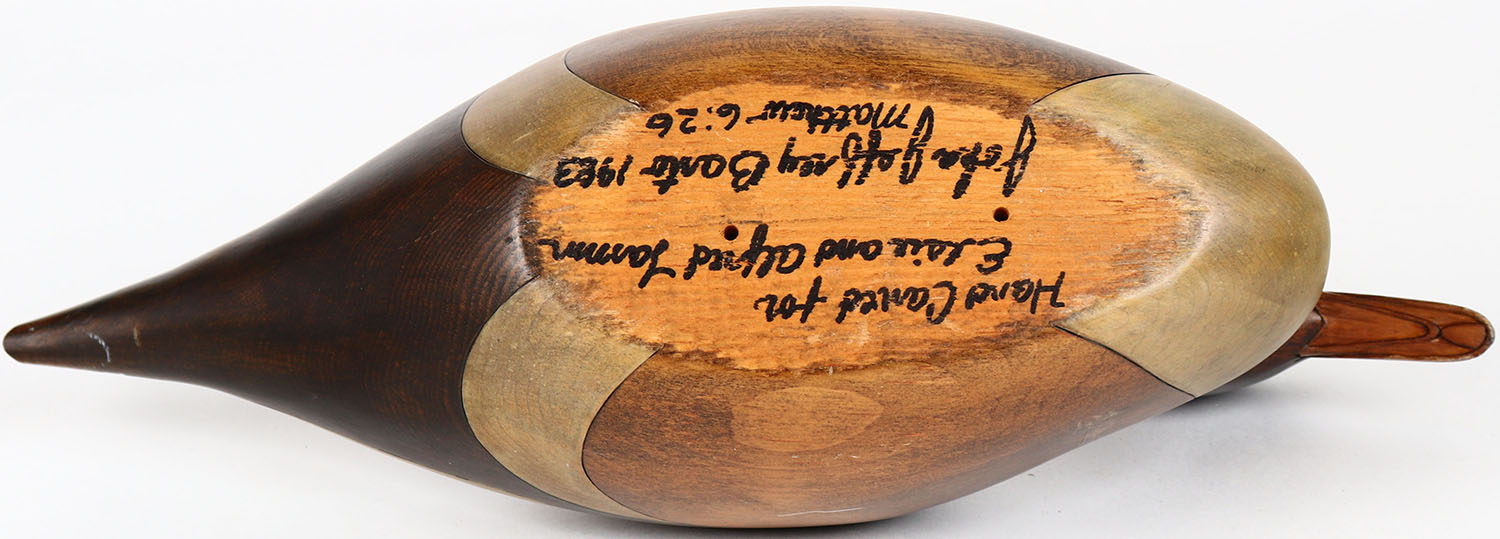 Hand Carved for
Elsie and Alfred
John Jeffrey Barto 1983
Matthew 6:26